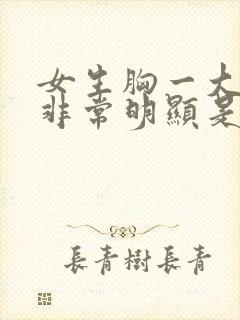 女生胸一大
非常明顯是
長青樹長青